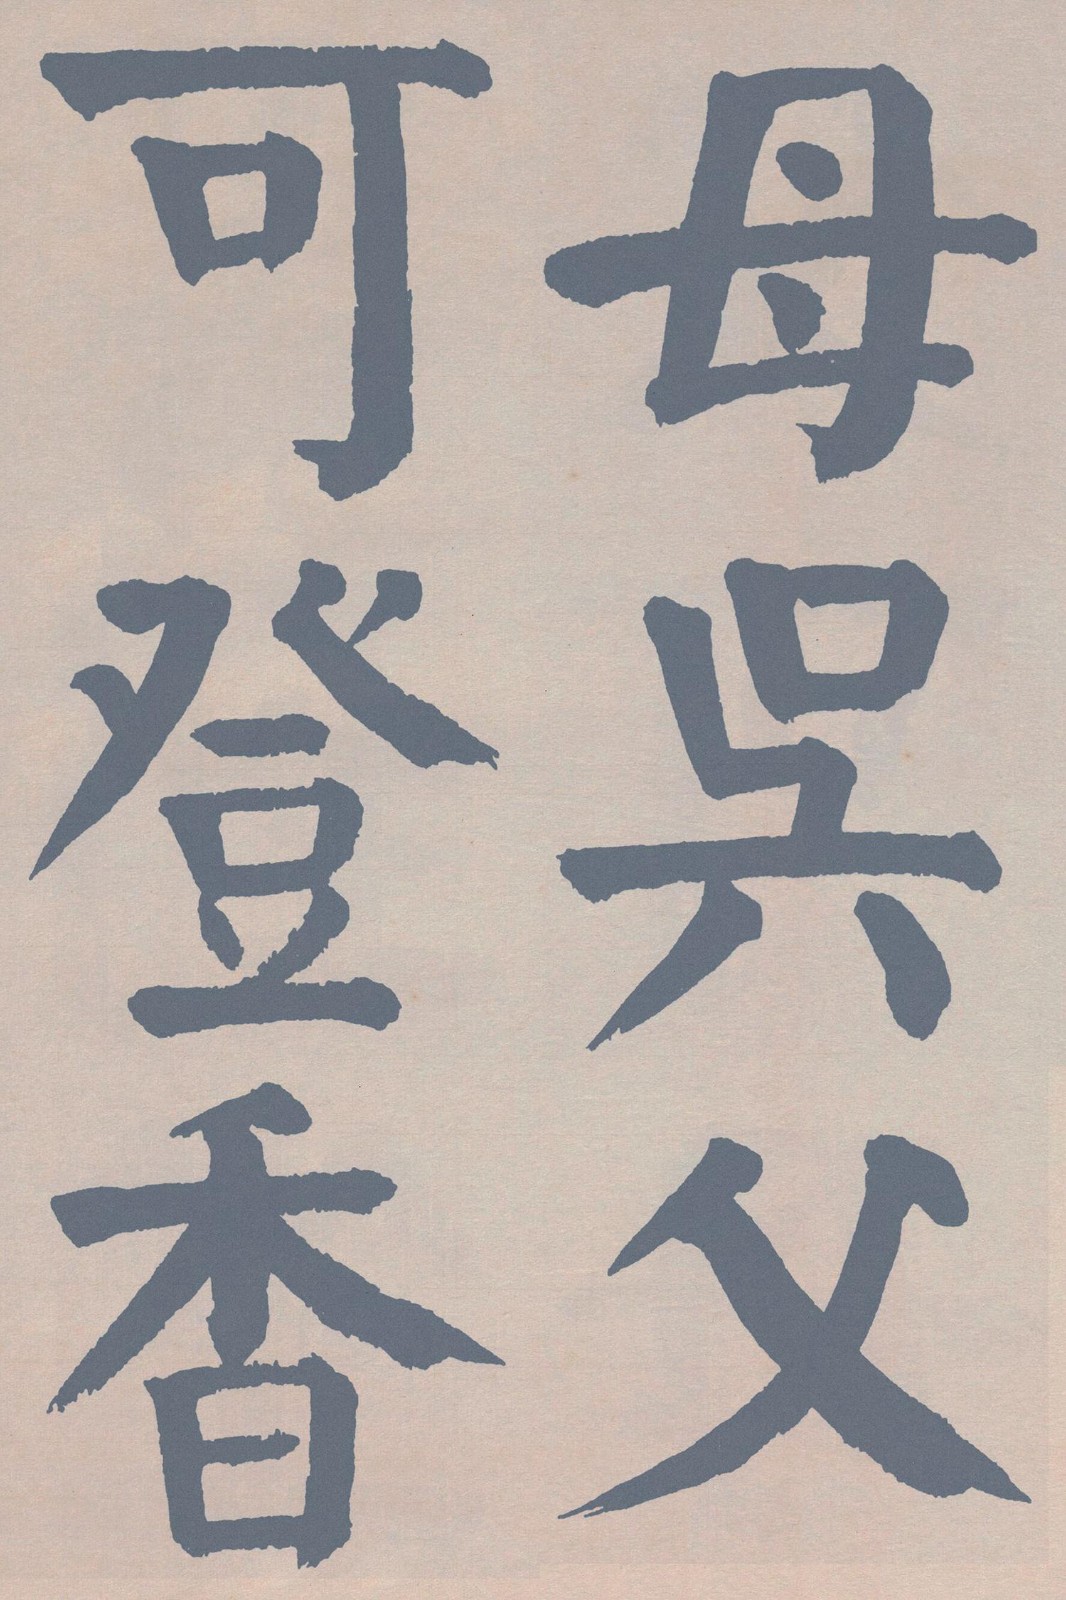 母吳父
可登香